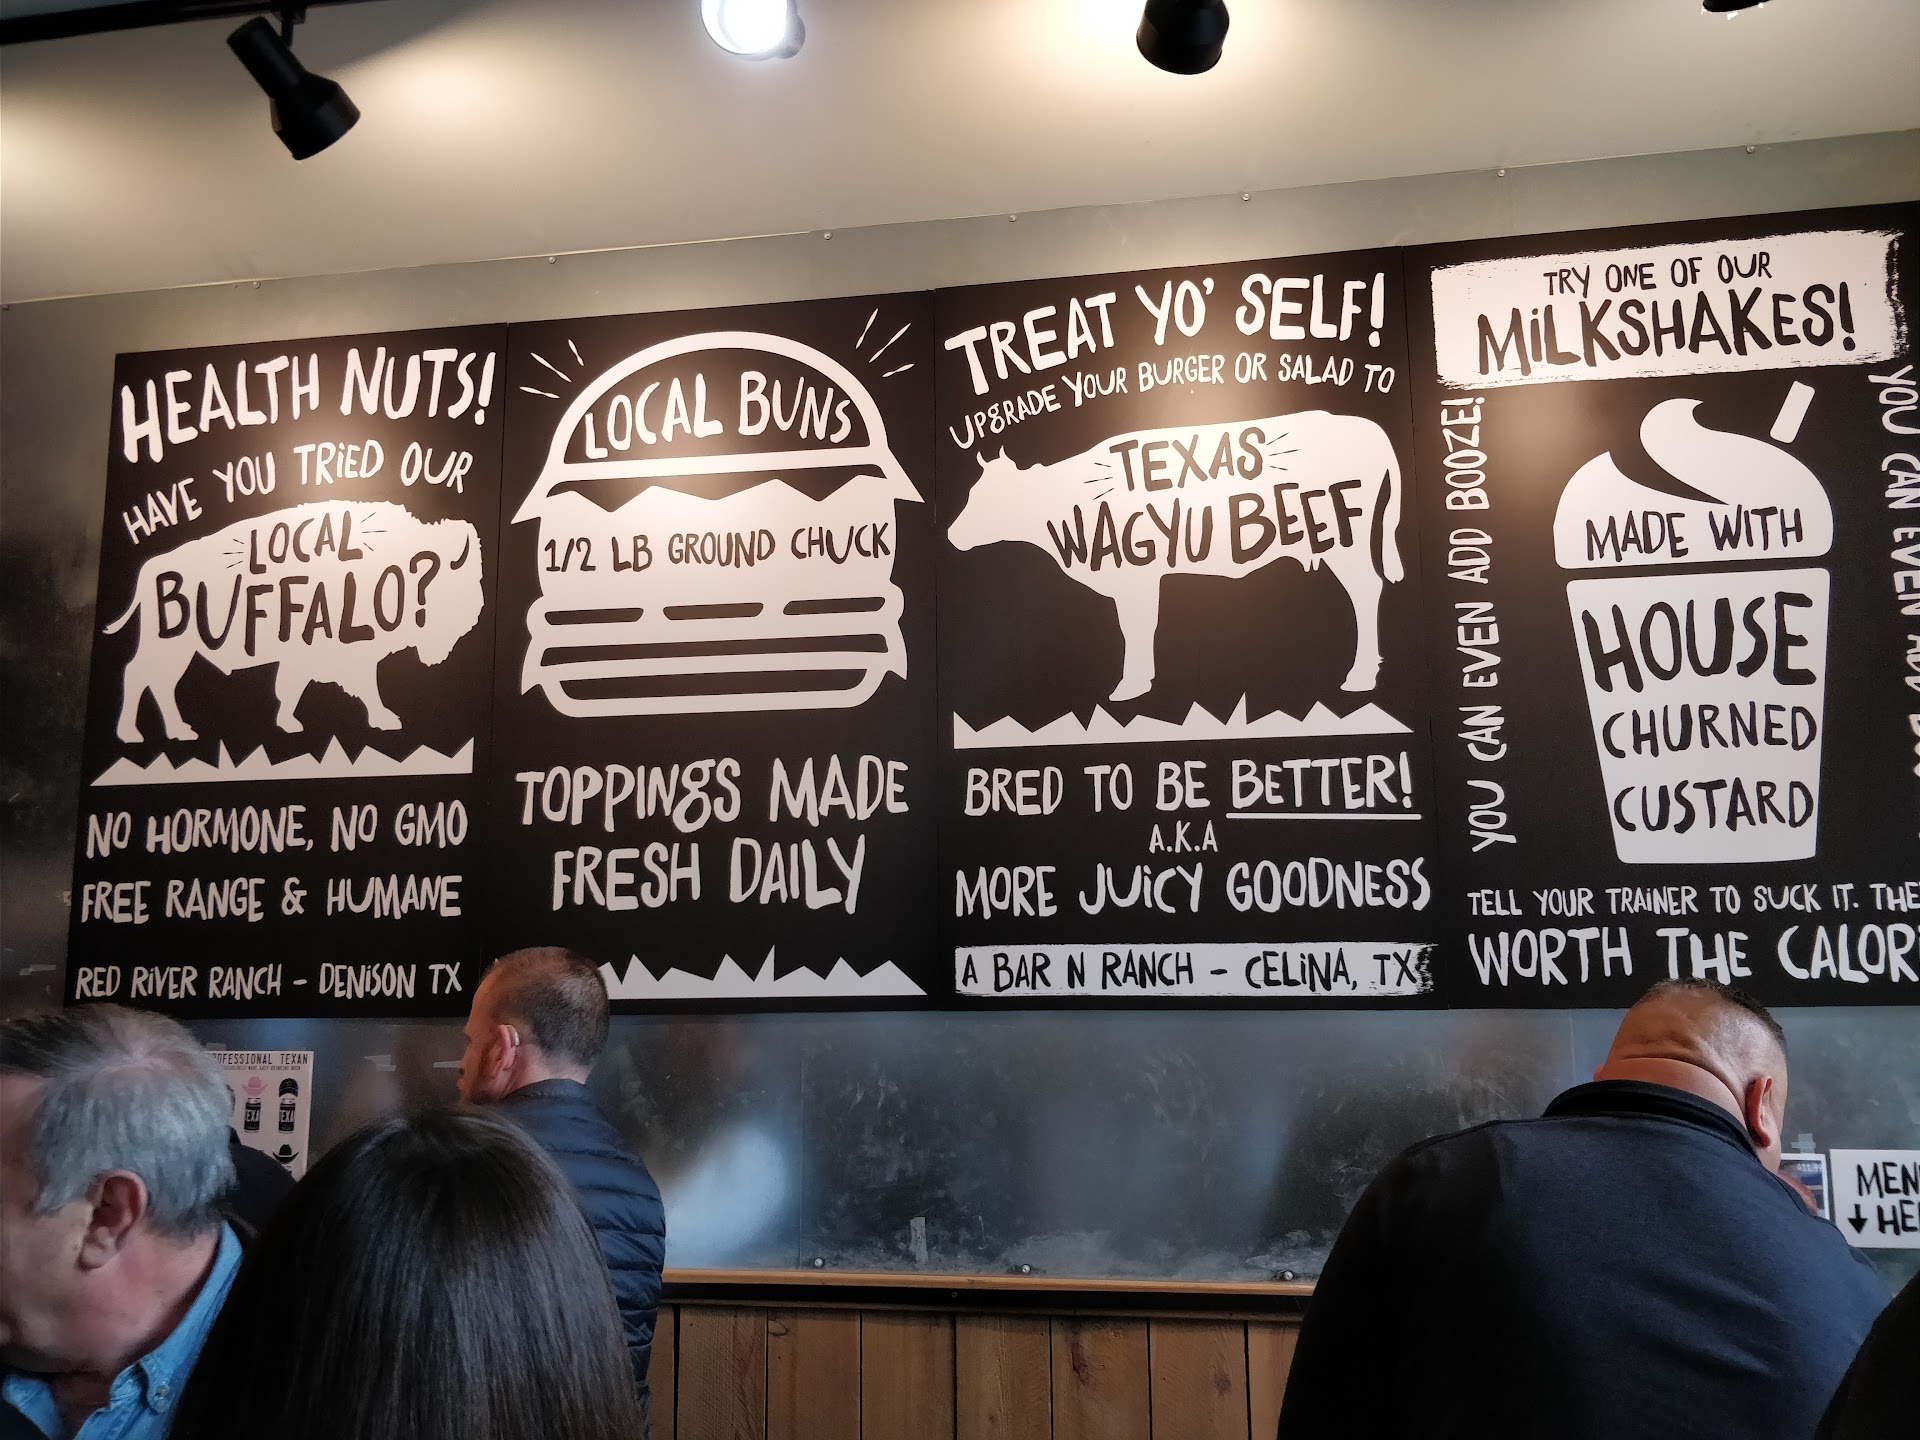 HEALTH NUTS!
HAVE YOU TRIED OUR
LOCAL
BUFFALO?
NO HORMONE, NO GMO
FREE RANGE & HUMANE
RED RIVER RANCH - DENISON TX
LOCAL BUNS
1/2 LB GROUND CHUCK
TOPPINGS MADE
FRESH DAILY
TREAT YO' SELF!
UPGRADE YOUR BURGER OR SALAD TO
TEXAS
WAGYU BEEF
BRED TO BE BETTER!
A.K.A
MORE JUICY GOODNESS
A BAR N RANCH - CELINA, TX
TRY ONE OF OUR
MILKSHAKES!
YOU CAN EVEN ADD BOOZE!
MADE WITH
HOUSE
CHURNED
CUSTARD
YOU CAN EVEN ADD
TELL YOUR TRAINER TO SUCK IT. THE
WORTH THE CALOR
PROFESSIONAL TEXAN
MEN
HE